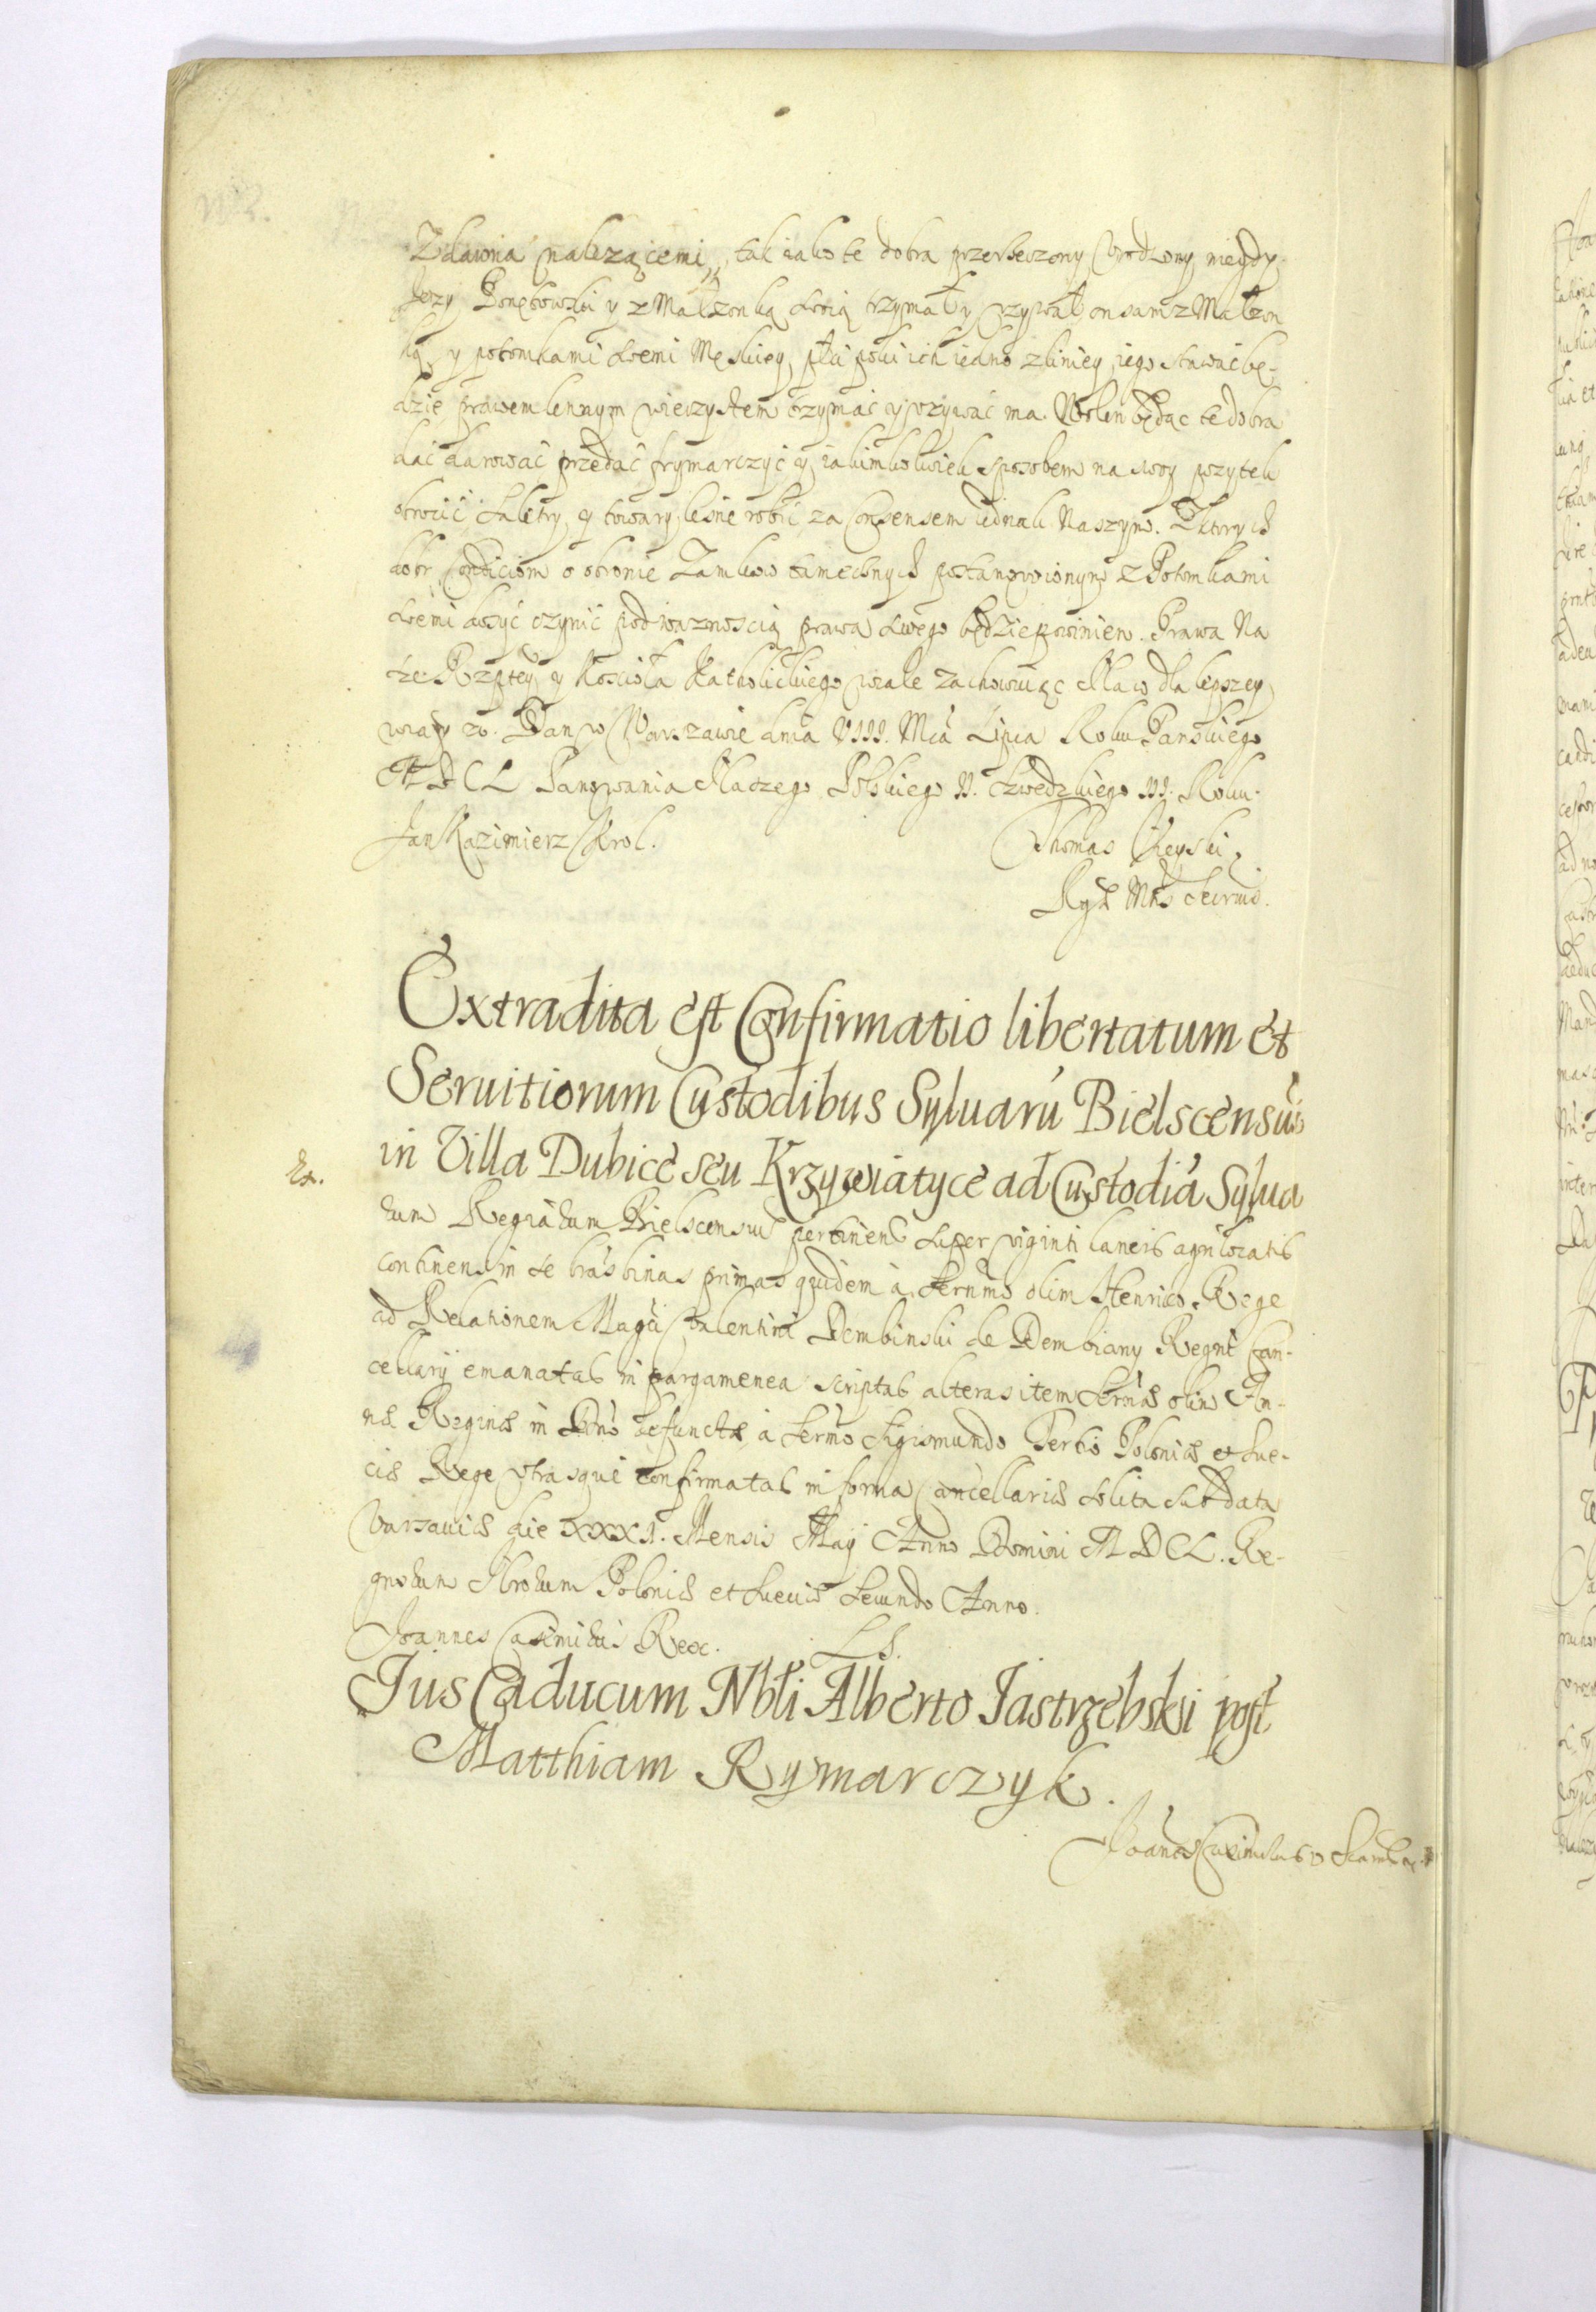 Zdawna należącemi, tak iako te dobra przerzeczony Vrodzony niegdy
Jerzy Ponętowski y z Małżonką swoią trzymał y vzywał on sam z Małżon
ką y potomkami swemi Męskiey płci poki ich iedno z liniey iego stawać bę-
dzie prawem lennym wieczystem trzymać y vzywać ma. Wolen będąc te dobra
dać darować przedać frymarczyć y iakimkolwiek sposobem na swoy pozytek
obrocić Saletry y towary leśne robić za Consensem iednak Naszym. Z ktorych
dobr Conditiom o obronie Zamkow tamecznych postanowionym z Potomkami
swemi dosyć czynić pod ważnoscią prawa swego będzie powinien. Prawa Na
sze Rzptey y Koscioła Katholickiego wcale zachowuiąc Na co dla lepszey
wiary etc. Dan w Warszawie dnia VIII. Mca Lipca Roku Pańskiego
MDCL Panowania Naszego Polskiego II. Szwedzkiego III. Roku.
Jan Kazimierz Krol.
Thomas Vieyski
Rgae Mtis Secrius.
Extradita est Confirmatio libertatum et
Seruitiorum Custodibus Syluarũ Bielscensiũ
in Villa Dubice seu Krzywiatyce ad Custodiã Sylua
Ex.
rum Regiarum Bielscensium pertinen super viginti laneis agri locatis
continens in se lras binas primas quidem à Sermo olim Henrico Rege
ad Relationem Magci Valentini Dembinski de Dembiany Regni Can-
cellarij emanatas in pargamenea scriptas alteras item Sermae olim An-
nae Reginae in Dno defunctae à Sermo Sigismundo Tertio Poloniae et Sue-
ciae Rege vtrasque confirmatas in forma Cancellariae solita sub data
Varsauiae die XXXI. Mensis Maij Anno Domini MDCL. Re-
gnorum Nrorum Poloniae et Sueciae Secundo Anno.
Joannes Casimirus Rex.
L. S.
Jus Caducum Nbli Alberto Jastrzebski post
Matthiam Rymarczyk.
Joannes Casimirus